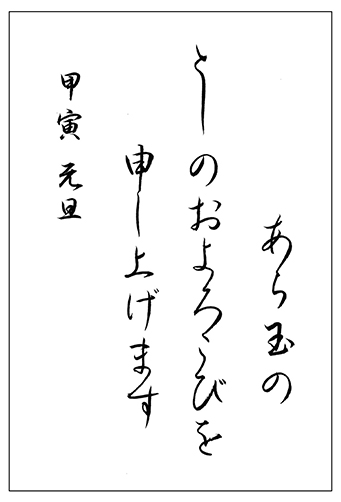 あら玉の
としのおよろこびを
申し上げます
甲寅 元旦